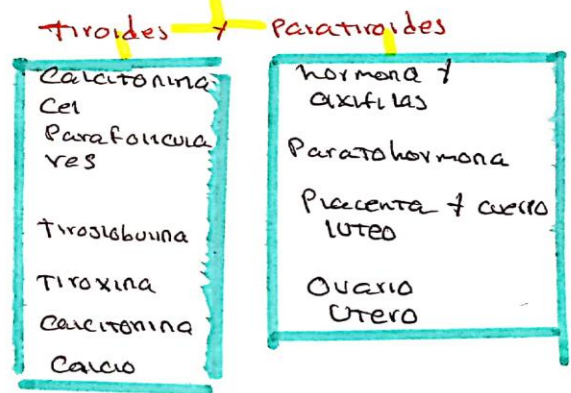 Tiroides y Paratiroides
Calcitonina
Cel
Parafolicula
res
Tiroglobulina
Tiroxina
Calcitonina
Calcio
hormona y
oxifilas
Paratohormona
Placenta y cuerpo
luteo
Ovario
Utero